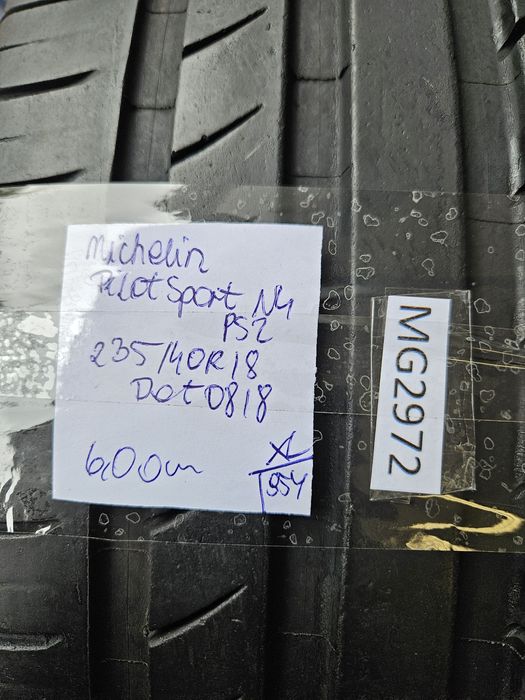 Michelin
Pilot Sport N4
PS2
235/40R18
Dot 0818
6,00m
XL
95Y
MG2972